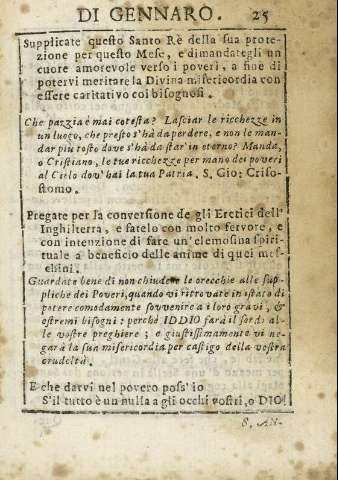 DI GENNARO. 25
Supplicate questo Santo Rè della sua prote-
zione per questo Mese, e dimandategli un
cuore amorevole verso i poveri, a fine di
potervi meritare la Divina misericordia con
essere caritativo coi bisognosi.
Che pazzia è mai cotesta? Lasciar le ricchezze in
un luogo, che presto s'hà da perdere, e non le man-
dar più tosto dove s'hà da star' in eterno? Manda,
o Cristiano, le tue ricchezze per mano dei poveri
al Cielo dov' hai la tua Patria. S. Gio: Criso-
stomo.
Pregate per la conversione de gli Eretici dell'
Inghilterra, e fatelo con molto fervore, e
con intenzione di fare un'elemosina spiri-
tuale a beneficio delle anime di quei mes-
chini.
Guardate bene di non chiudere le orecchie alle sup-
pliche dei Poveri, quando vi ritrovate in istato di
potere comodamente sovvenire a i loro gravi, &
estremi bisogni: perchè IDDIO farà il sordo al-
le vostre preghiere; e giustissimamente vi ne-
garà la sua misericordia per castigo della vostra
crudeltà.
E che darvi nel povero poss' io
S'il tutto è un nulla a gli occhi vostri, o DIO!